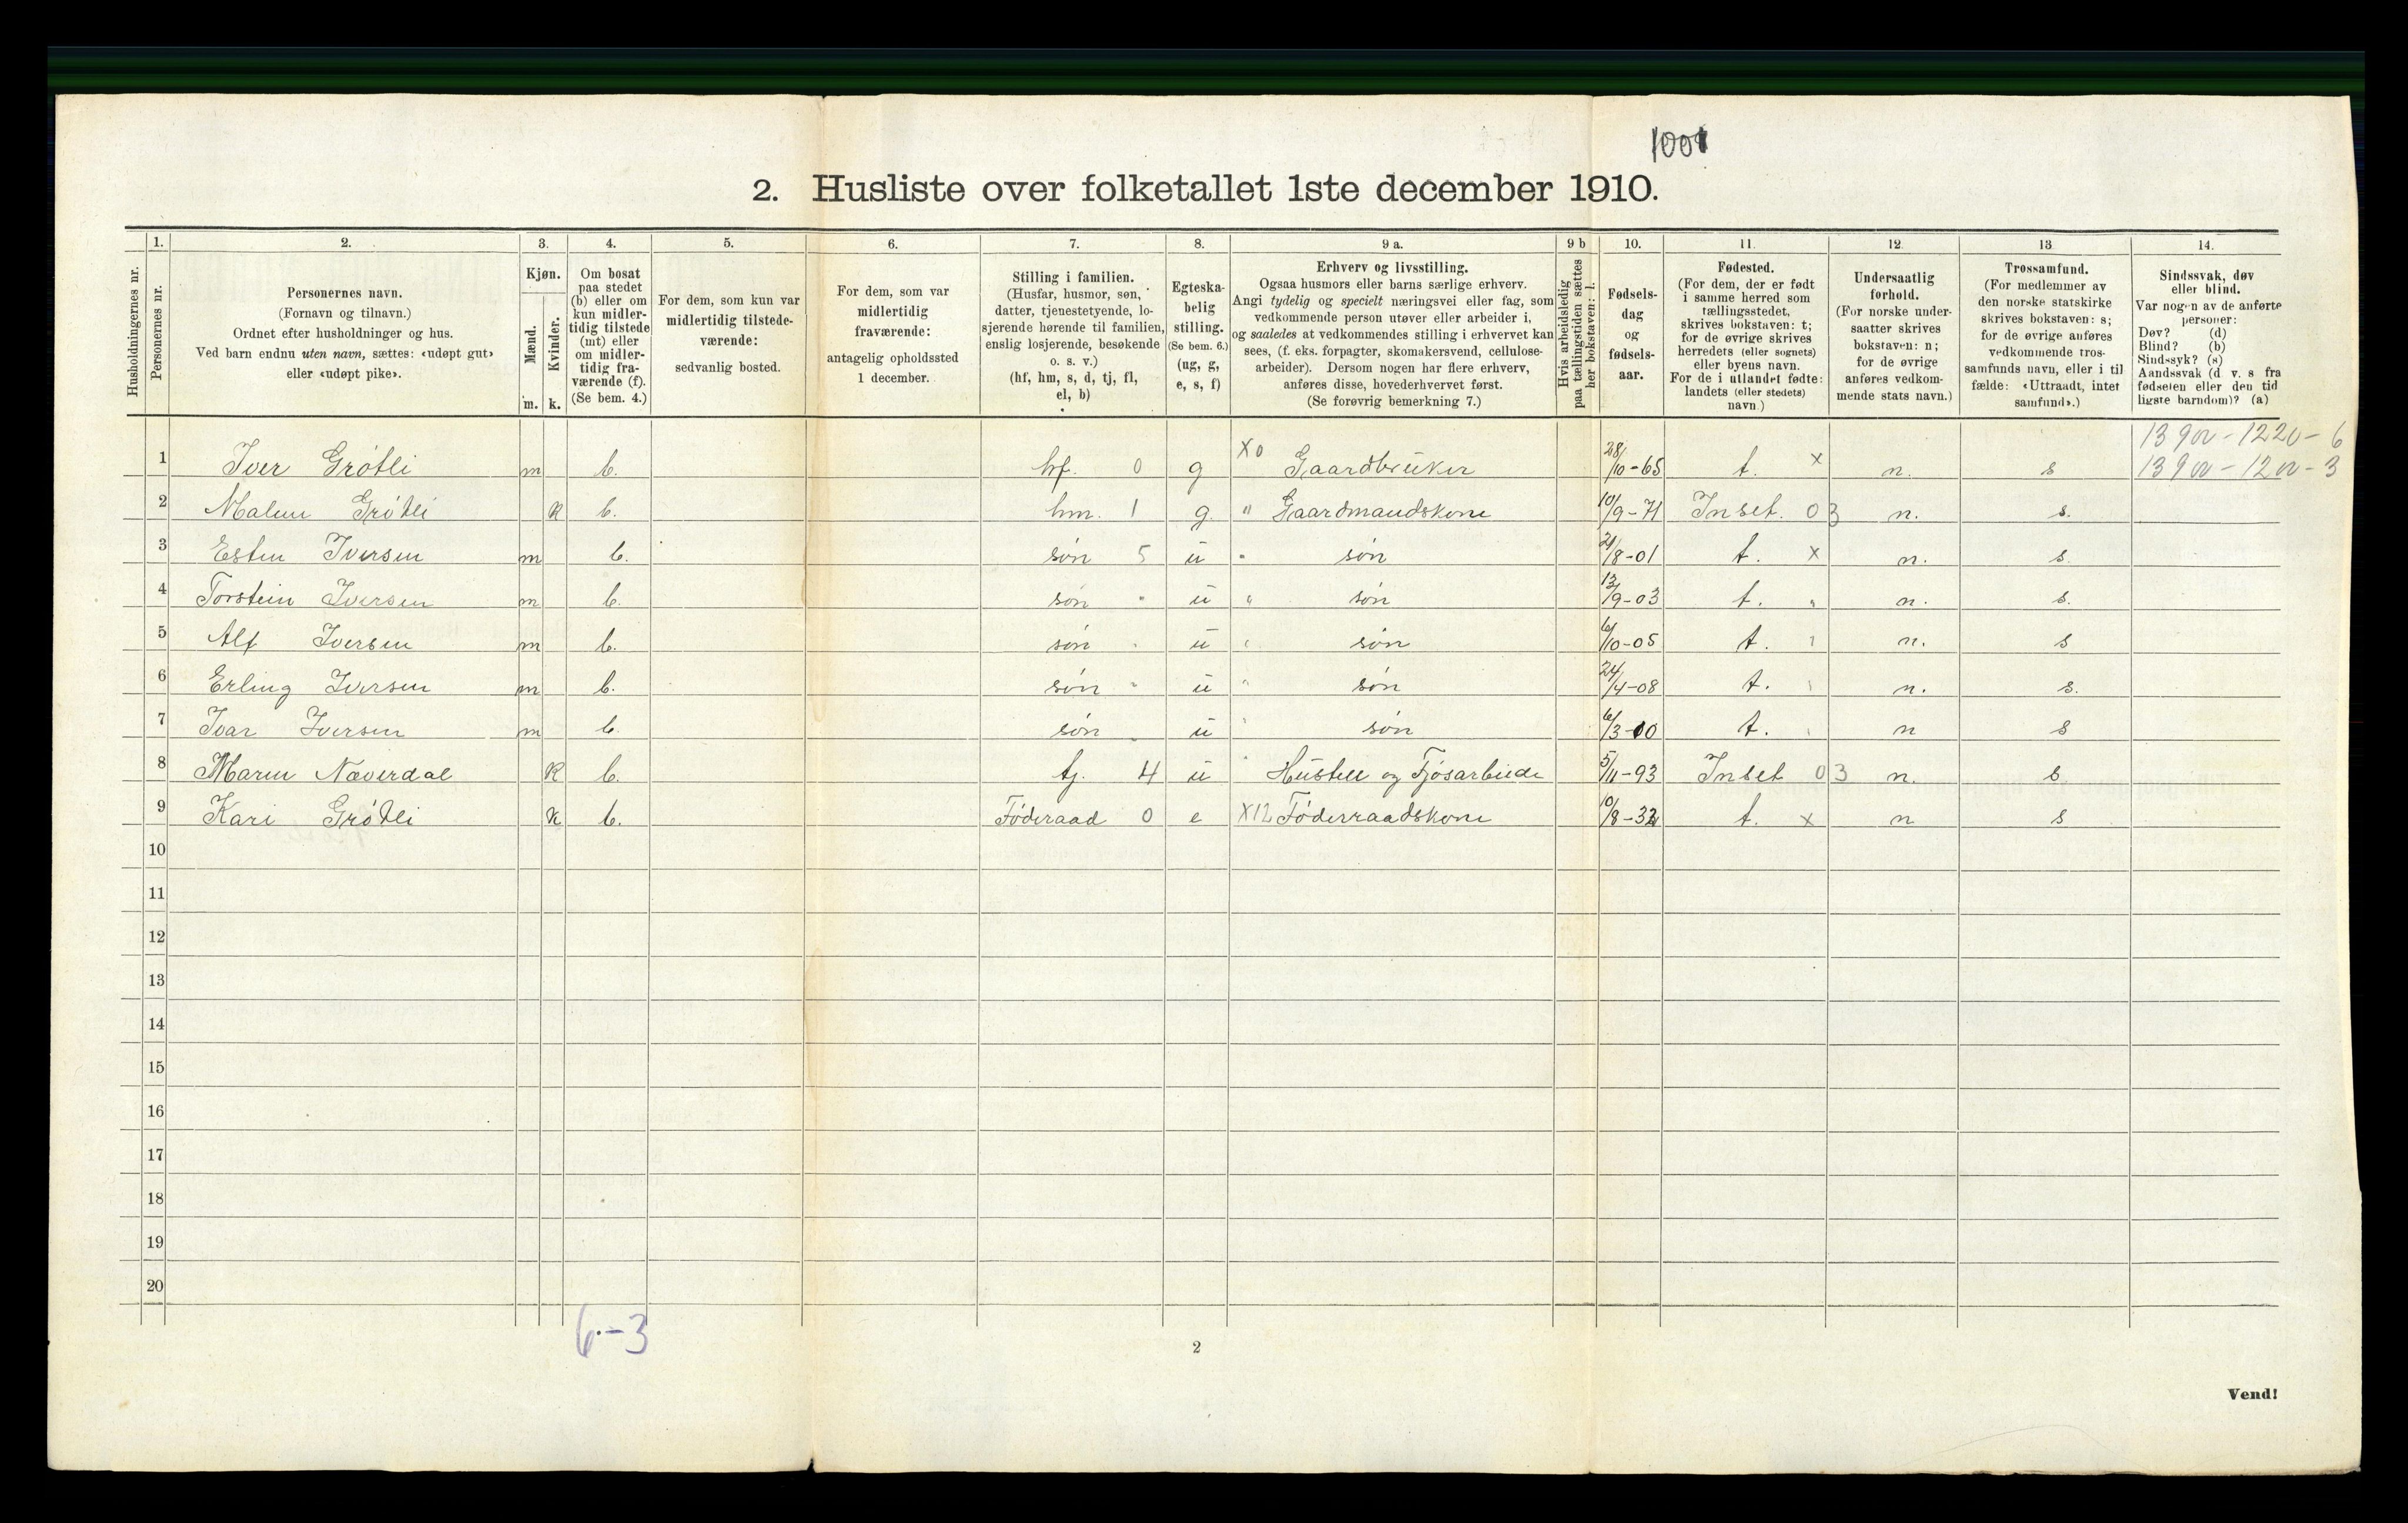 1001
2. Husliste over folketallet 1ste december 1910.
Husholdningernes nr.
1. Personernes nr.
2. Personernes navn. (Fornavn og tilnavn.) Ordnet efter husholdninger og hus. Ved barn endnu uten navn, sættes: «udøpt gut» eller «udøpt pike».
3. Kjøn. Mænd. m. Kvinder. k.
4. Om bosat paa stedet (b) eller om kun midlertidig tilstede (mt) eller om midlertidig fraværende (f). (Se bem. 4.)
5. For dem, som kun var midlertidig tilstedeværende: sedvanlig bosted.
6. For dem, som var midlertidig fraværende: antagelig opholdssted 1 december.
7. Stilling i familien. (Husfar, husmor, søn, datter, tjenestetyende, losjerende hørende til familien, enslig losjerende, besøkende o. s. v.) (hf, hm, s, d, tj, fl, el, b)
8. Egteskabelig stilling. (Se bem. 6.) (ug, g, e, s, f)
9 a. Erhverv og livsstilling. Ogsaa husmors eller barns særlige erhverv. Angi tydelig og specielt næringsvei eller fag, som vedkommende person utøver eller arbeider i, og saaledes at vedkommendes stilling i erhvervet kan sees, (f. eks. forpagter, skomakersvend, cellulosearbeider). Dersom nogen har flere erhverv, anføres disse, hovederhvervet først. (Se forøvrig bemerkning 7.)
9 b Hvis arbeidsledig paa tællingstiden sættes her bokstaven: l.
10. Fødselsdag og fødselsaar.
11. Fødested. (For dem, der er født i samme herred som tællingsstedet, skrives bokstaven: t; for de øvrige skrives herredets (eller sognets) eller byens navn. For de i utlandet fødte: landets (eller stedets) navn.)
12. Undersaatlig forhold. (For norske undersaatter skrives bokstaven: n; for de øvrige anføres vedkommende stats navn.)
13 Trossamfund. (For medlemmer av den norske statskirke skrives bokstaven: s; for de øvrige anføres vedkommende trossamfunds navn, eller i tilfælde: «Uttraadt, intet samfund».)
14. Sindssvak, døv eller blind. Var nogen av de anførte personer: Døv? (d) Blind? (b) Sindssyk? (s) Aandssvak (d. v. s. fra fødselen eller den tidligste barndom)? (a)
1390 - 1220 - 6
1 Iver Grötli m b. hf. 0 g X0 Gaardbruker 28/10-65 t. x n. s 1390 - 120 - 3
2 Malen Grötli k b. hm. 1 g. " Gaardmandskone 10/9-71 Inset. 03 n. s.
3 Esten Iversen m b. søn 5 u " søn 21/8-01 t. x n. s.
4 Torstein Iversen m b. søn " u " søn 13/9-03 t. " n. s.
5 Alf Iversen m b. søn " u " søn 6/10-05 t. " n. s
6 Erling Iversen m b. søn " u " søn 24/4-08 t. " n. s.
7 Ivar Iversen m b. søn " u " søn 6/3-10 t. " n s
8 Maren Næverdal k b. tj. 4 u " Hüstell og Fjøsarbeide 5/11-93 Inset 03 n. s
9 Kari Grötli k b. Föderaad 0 e X12 Föderraadskone 10/8-32 t. x n s
10
11
12
13
14
15
16
17
18
19
20
6-3
2
Vend!